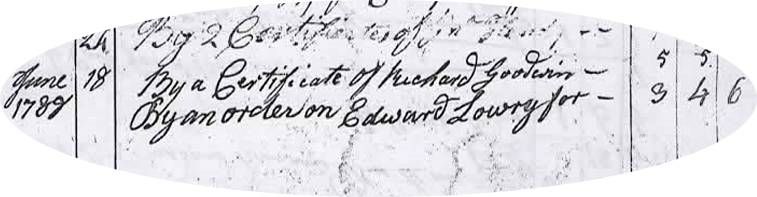 24 By 2 Certificates of
June 18 By a Certificate of Richard Goodwin – 5 5
1789 By an order on Edward Lowry for – 3 4 6